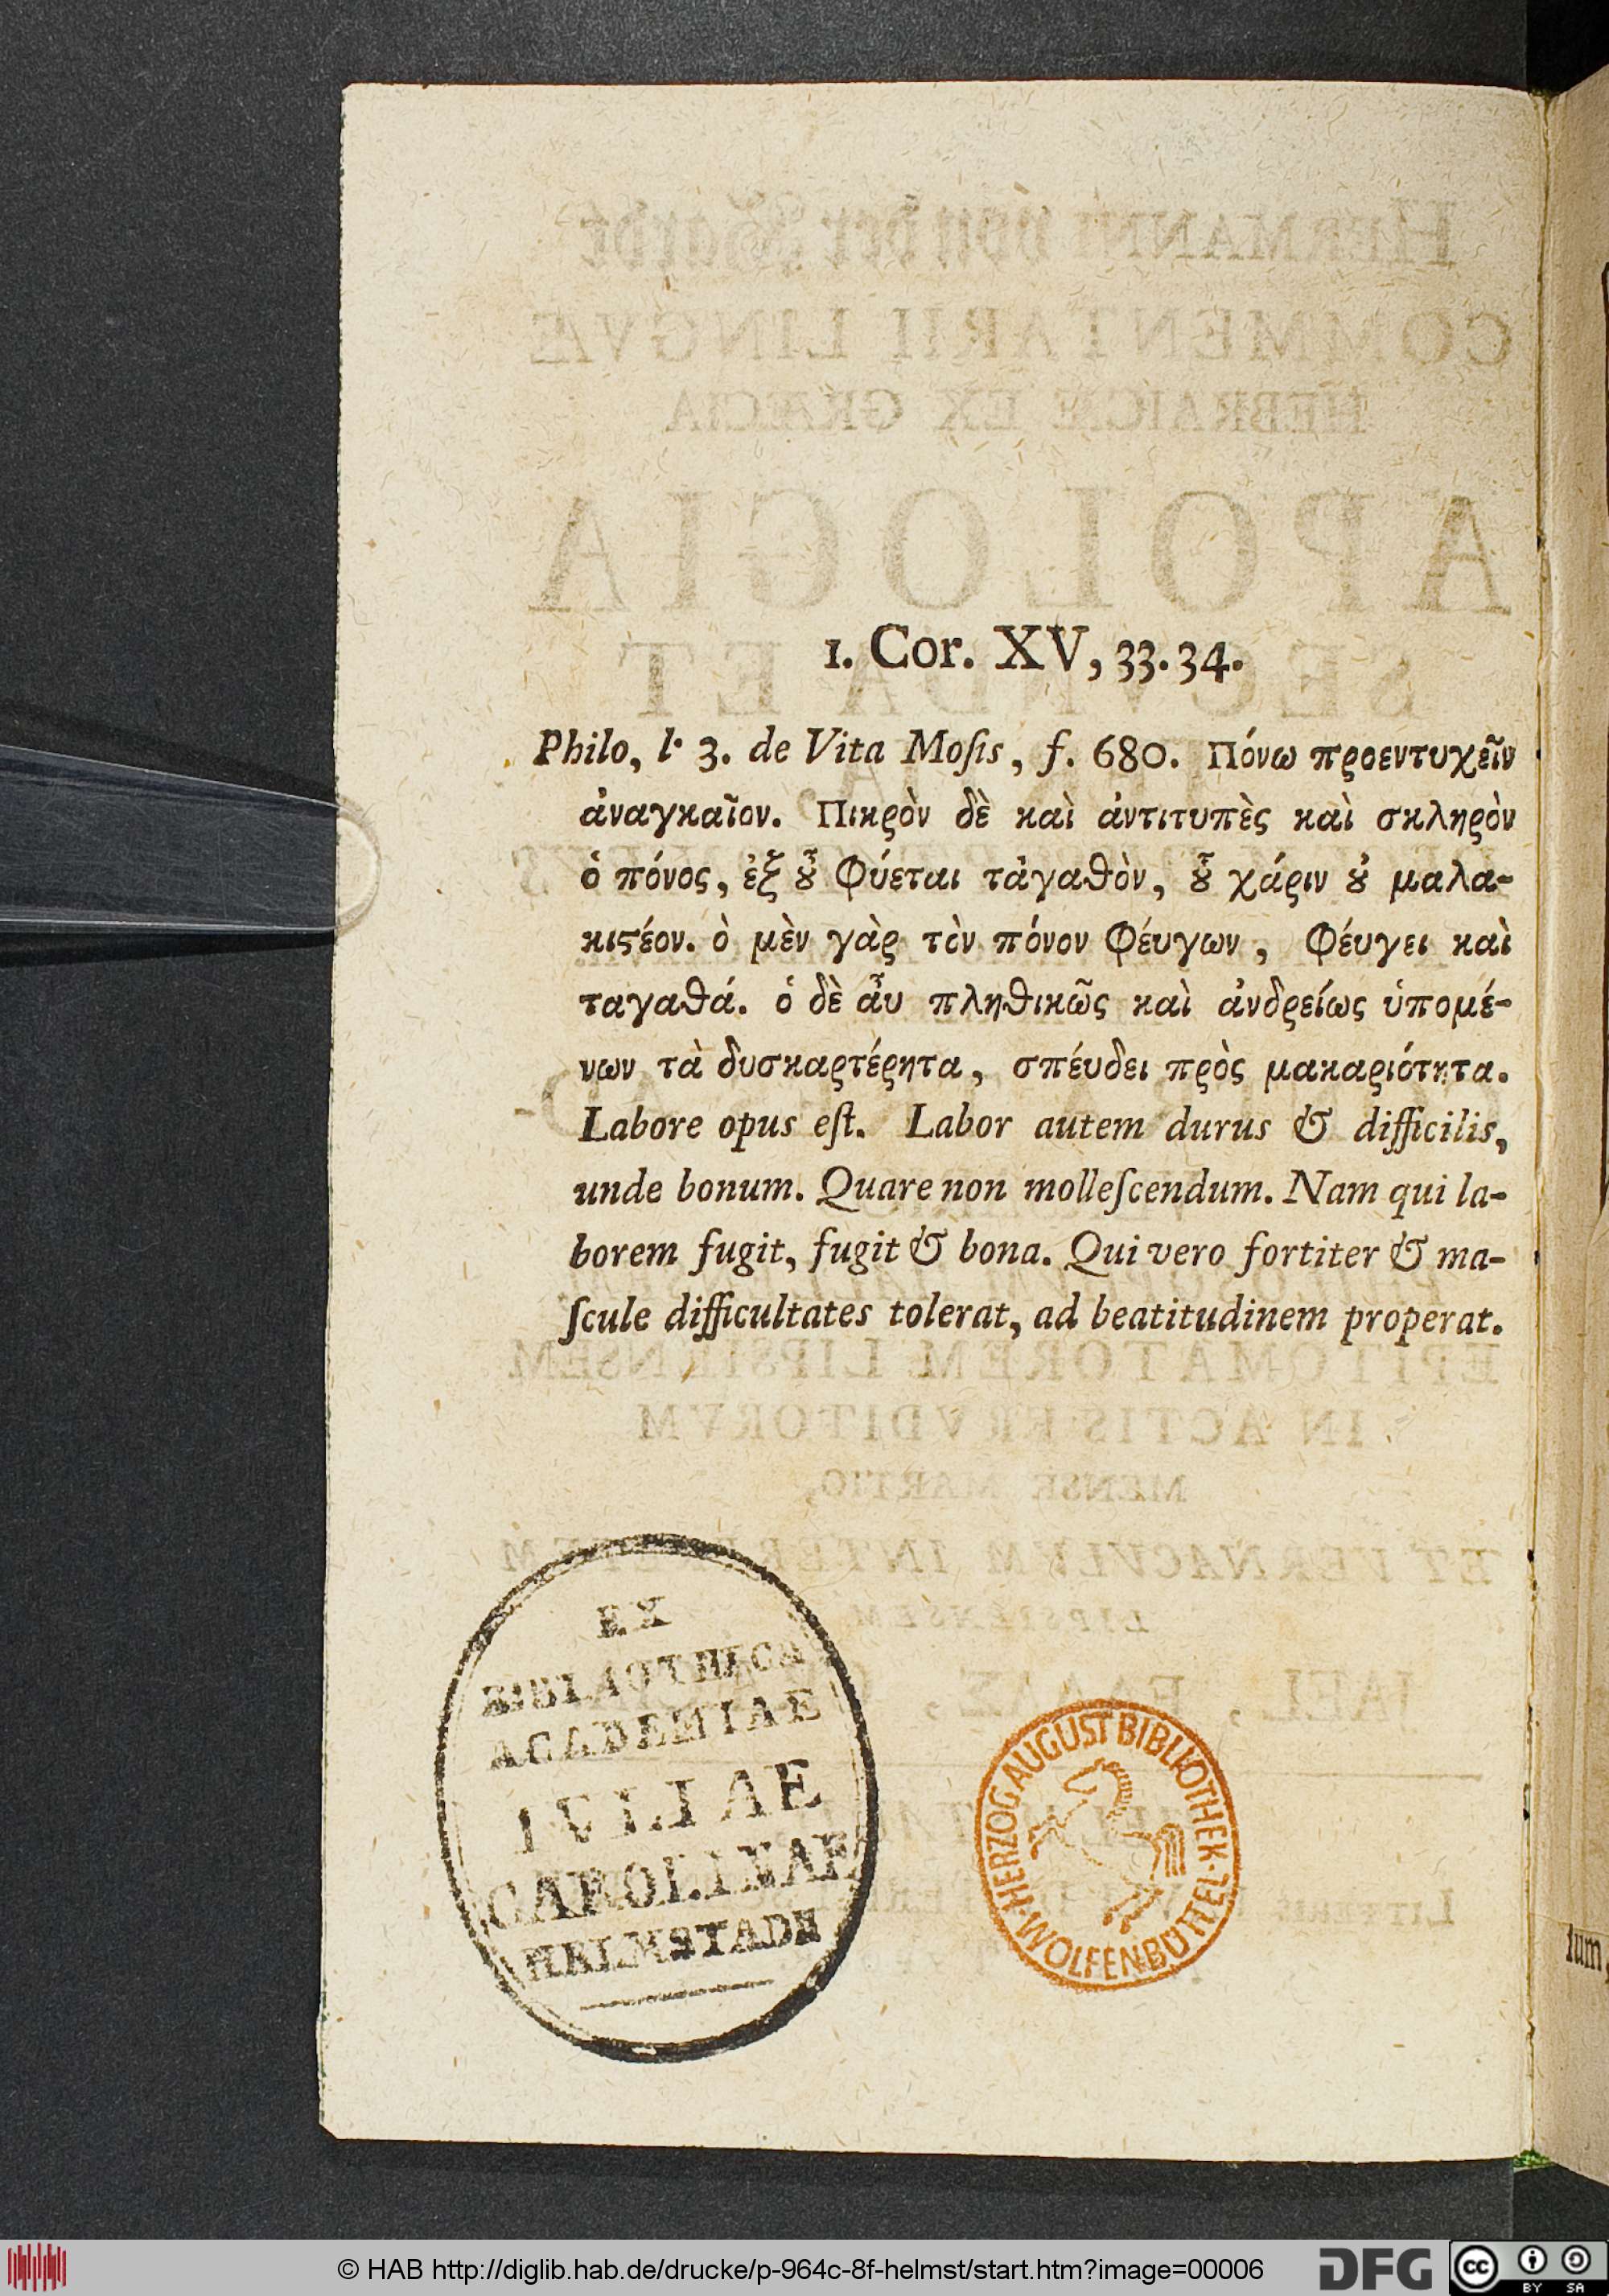 1. Cor. XV, 33. 34.
Philo, l. 3. de Vita Moſis, f. 680. Πόνω προεντυχεῖν
ἀναγκαῖον. Πικρὸν δὲ καὶ ἀντιτυπὲς καὶ σκληρὸν
ὁ πόνος, ἐξ ȣ̃ φύεται τἀγαθὸν, ȣ̃ χάριν ȣ̓ μαλα-
κιϛέον. ὁ μὲν γὰρ τὸν πόνον φέυγων, φέυγει καὶ
ταγαθά. ὁ δὲ ἆυ πληθικῶς καὶ ἀνδρείως ὑπομέ-
νων τὰ δυσκαρτέρητα, σπέυδει πρὸς μακαριότητα.
Labore opus eſt. Labor autem durus & difficilis,
unde bonum. Quare non molleſcendum. Nam qui la-
borem fugit, fugit & bona. Qui vero fortiter & ma-
ſcule difficultates tolerat, ad beatitudinem properat.
EX
BIBLIOTHECA
ACADEMIAE
IVLIAE
CAROLINAE
HELMSTADII
HERZOG AUGUST BIBLIOTHEK · WOLFENBÜTTEL ·
tum
© HAB http://diglib.hab.de/drucke/p-964c-8f-helmst/start.htm?image=00006
DFG
cc BY SA